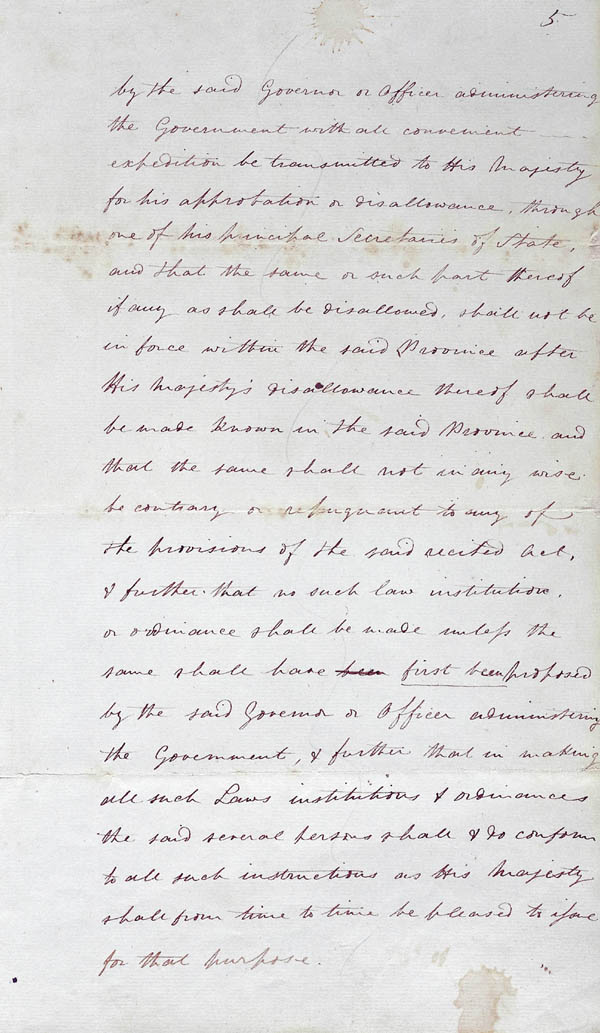 5
by the said Governor or Officer administering
the Government with all convenient
expedition be transmitted to His Majesty
for his approbation or disallowance, through
one of his principal Secretaries of State,
and that the same or such part thereof
if any as shall be disallowed, shall not be
in force within the said Province after
His Majesty's disallowance thereof shall
be made known in the said Province and
that the same shall not in any wise
be contrary or repugnant to any of
the provisions of the said recited Act,
& further that no such law institution,
or ordinance shall be made unless the
same shall have been first been proposed
by the said Governor or Officer administering
the Government, & further that in making
all such Laws institutions & ordinances
the said several persons shall & do conform
to all such instructions as His Majesty
shall from time to time be pleased to issue
for that purpose.